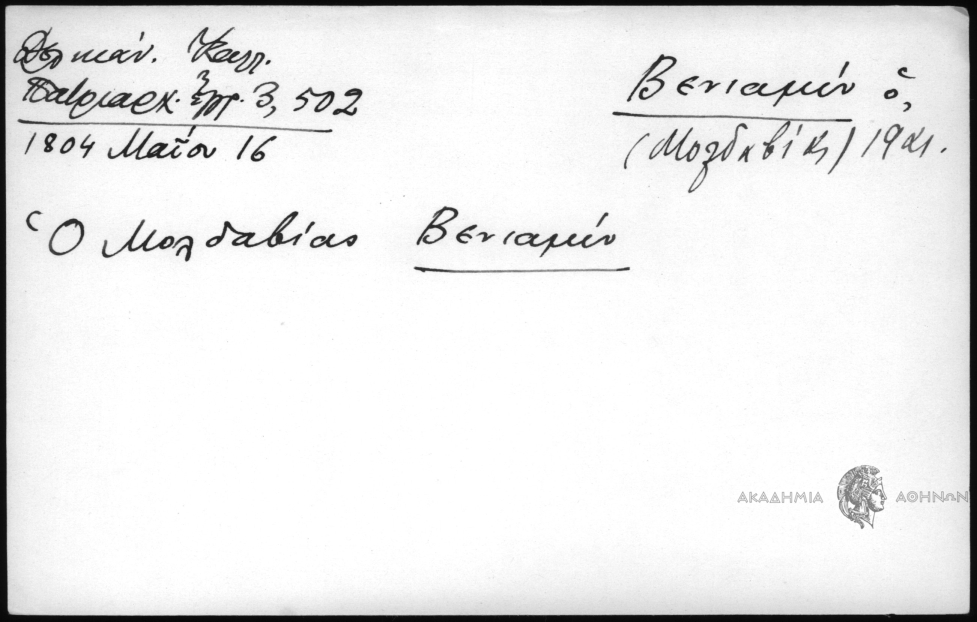 Δελικάν. Καλλ.
Πατριαρχ. Ἔγγρ. 3, 502
1804 Μαΐου 16
Βενιαμίν ὁ,
(Μολδαβίας) 19 αι.
Ὁ Μολδαβίας Βενιαμίν
ΑΚΑΔΗΜΙΑ ΑΘΗΝΩΝ